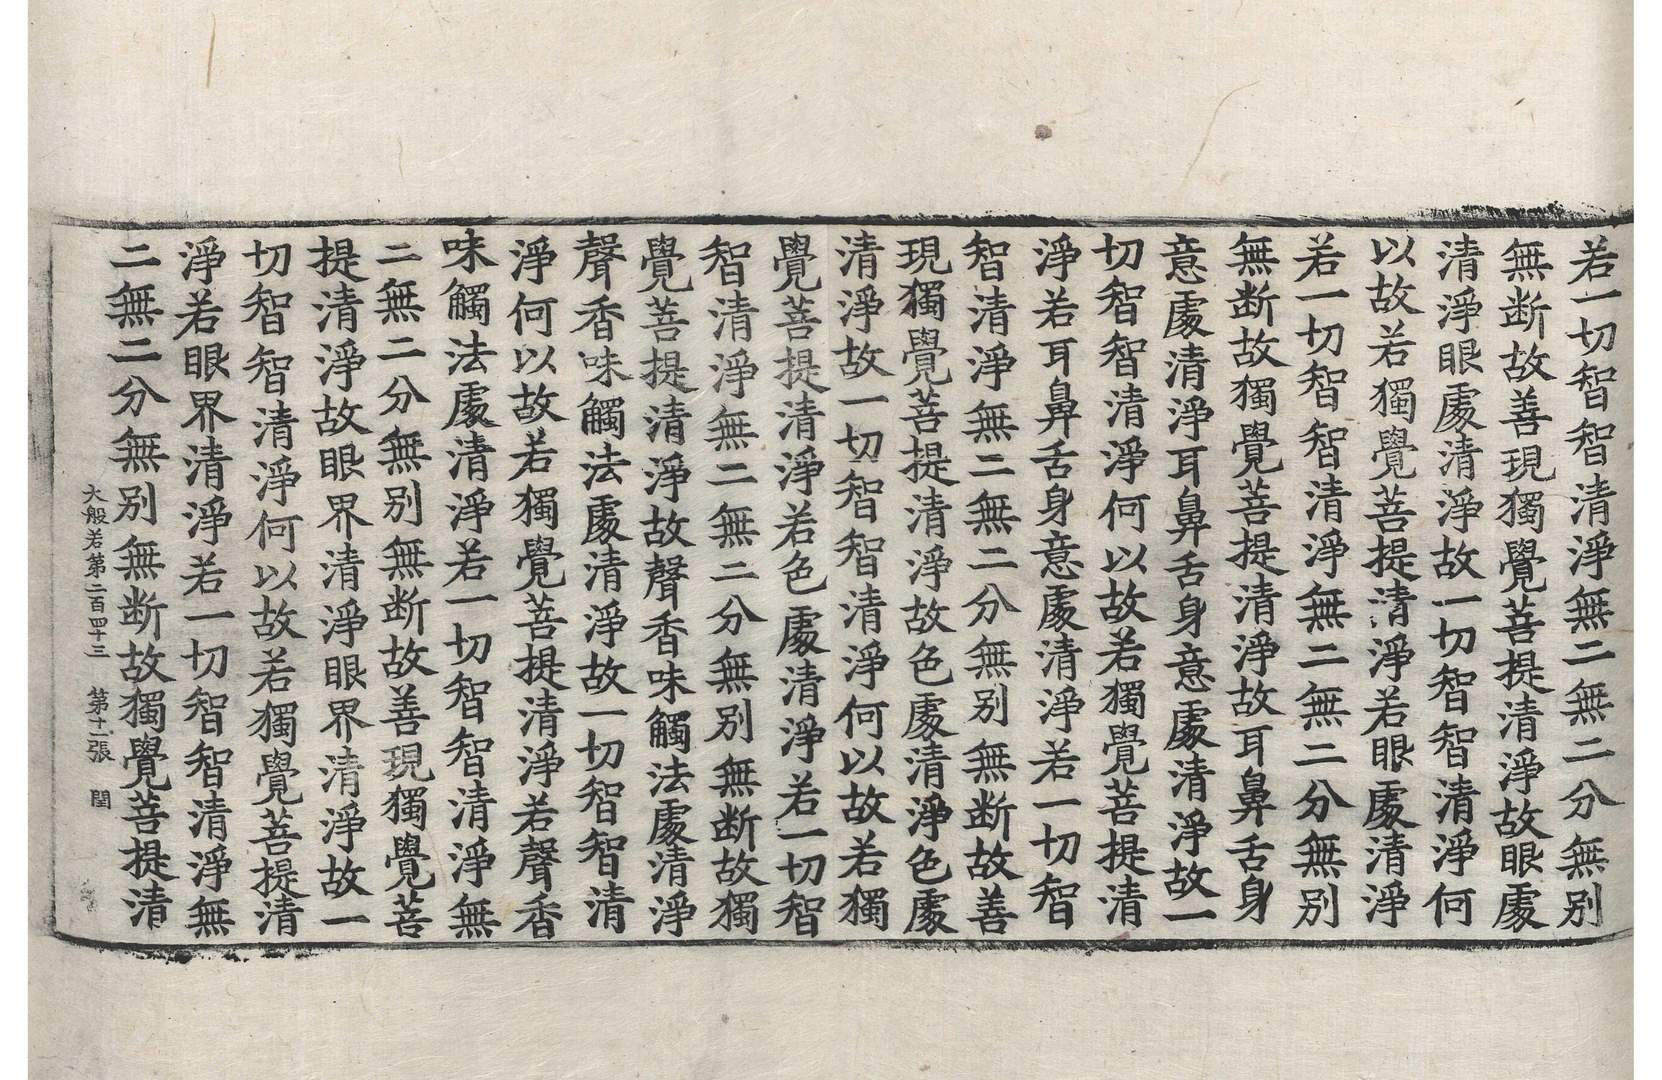 若一切智智清淨無二無二分無別
無断故善現獨覺菩提清淨故眼處
清淨眼處清淨故一切智智清淨何
以故若獨覺菩提清淨若眼處清淨
若一切智智清淨無二無二分無別
無断故獨覺菩提清淨故耳鼻舌身
意處清淨耳鼻舌身意處清淨故一
切智智清淨何以故若獨覺菩提清
淨若耳鼻舌身意處清淨若一切智
智清淨無二無二分無別無断故善
現獨覺菩提清淨故色處清淨色處
清淨故一切智智清淨何以故若獨
覺菩提清淨若色處清淨若一切智
智清淨無二無二分無別無断故獨
覺菩提清淨故聲香味觸法處清淨
聲香味觸法處清淨故一切智智清
淨何以故若獨覺菩提清淨若聲香
味觸法處清淨若一切智智清淨無
二無二分無別無断故善現獨覺菩
提清淨故眼界清淨眼界清淨故一
切智智清淨何以故若獨覺菩提清
淨若眼界清淨若一切智智清淨無
二無二分無別無断故獨覺菩提清
大般若第二百四十三 第十二張 閏